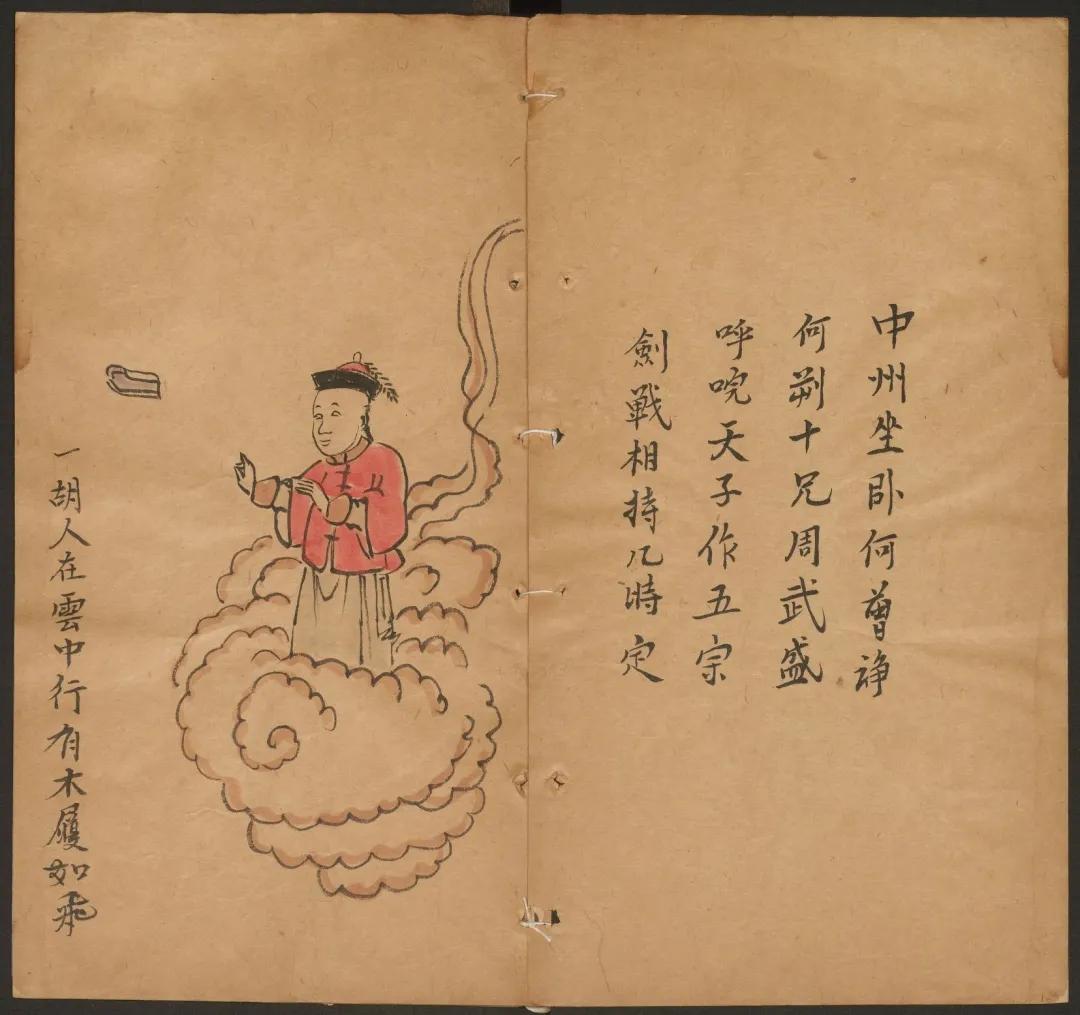 中州坐卧何曾諍
何荆十兄周武盛
呼唍天子作五宗
劍戰相持几時定
一胡人在雲中行有木履如飛